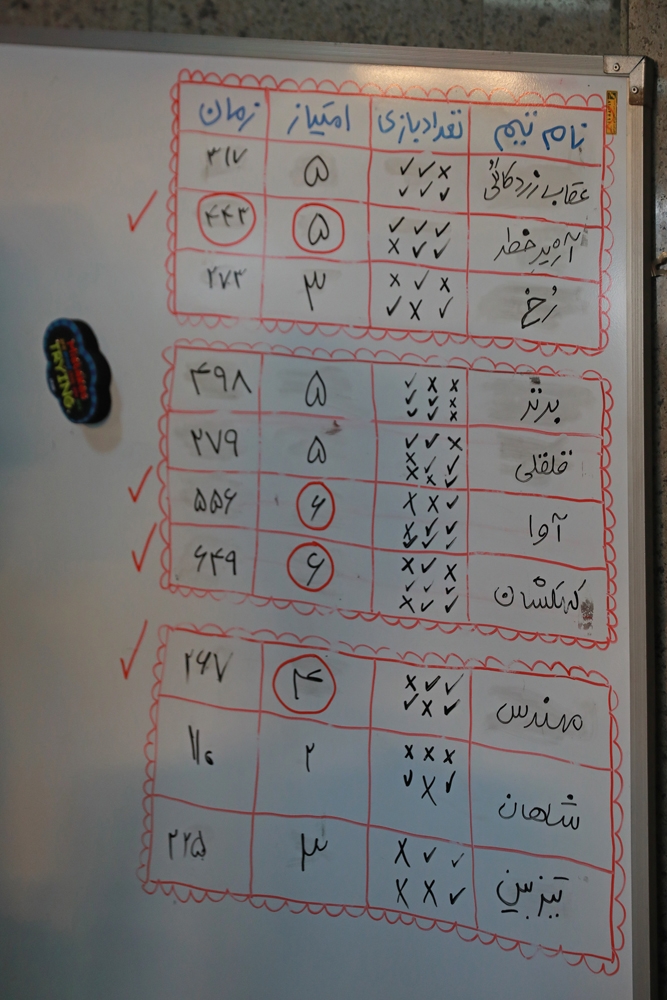 نام تیم تعداد بازی امتیاز زمان
عقاب زرد ✓✓× ✓✓✓ ۵ ۳۱۷
آژیر خطر ✓✓✓ ×✓✓ ۵ ۴۴۳
رُخ ×✓× ✓×✓ ۳ ۲۷۳
برتر ✓×× ✓✓× ✓✓× ۵ ۴۹۸
قلقلی ✓✓× ×✓✓ ××✓ ۵ ۲۷۹
آوا ××✓ ×✓✓ ✓✓✓ ۶ ۵۵۶
کهکشان ×✓× ✓✓✓ ×✓✓ ۶ ۶۴۹
مهندس ×✓✓ ✓×✓ ۴ ۲۶۷
شاهان ××× ✓×✓ ۲
تیزبین ×✓✓ ××✓ ۳ ۲۲۵
TRYING